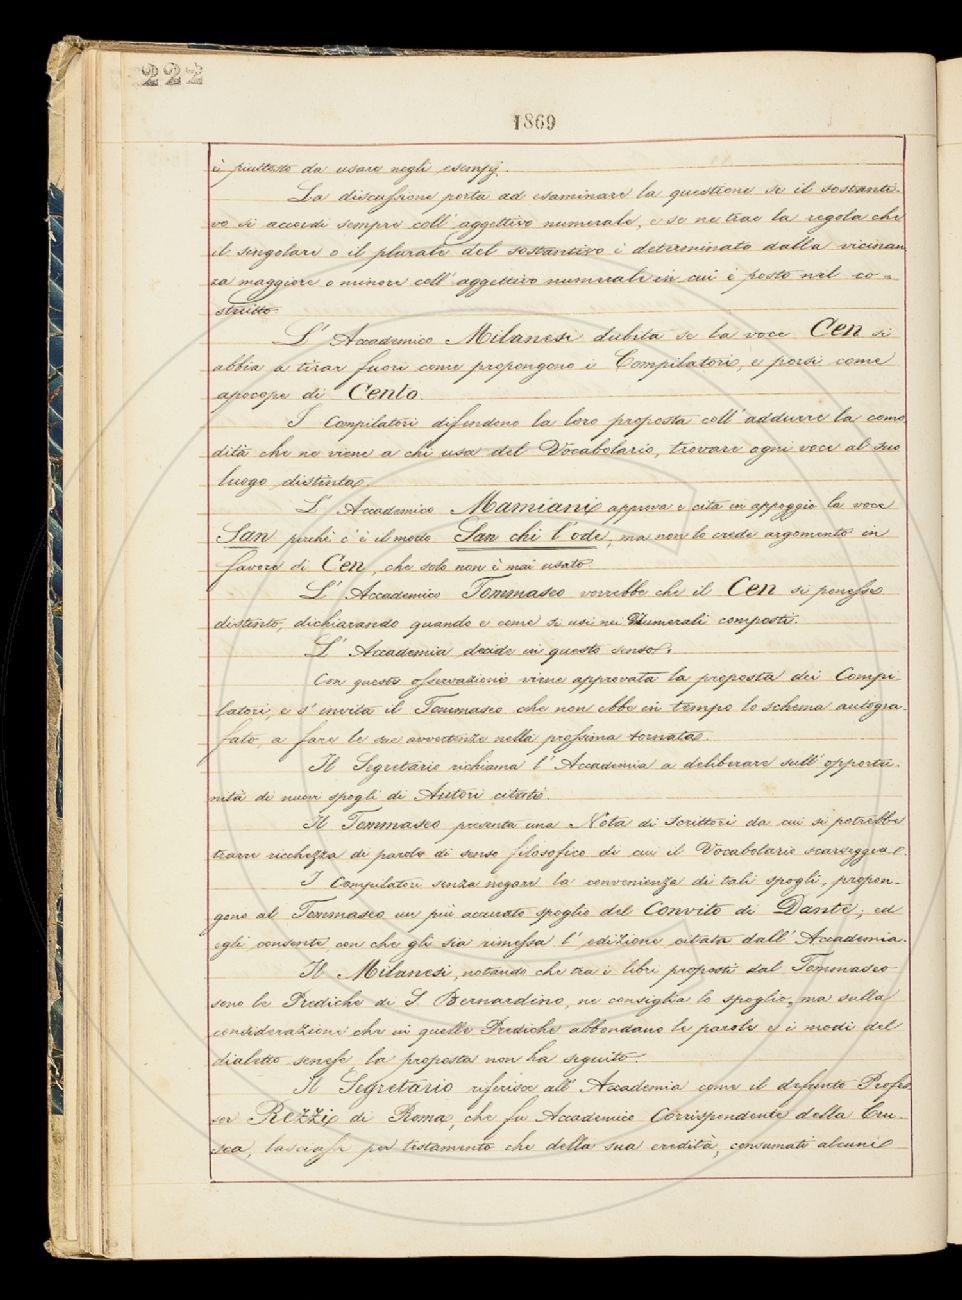 222
1869
è piuttosto da usare negli esempj.
La discussione porta ad esaminare la questione se il sostanti-
vo si accordi sempre coll' aggettivo numerale, e se ne trae la regola che
il singolare o il plurale del sostantivo è determinato dalla vicinan
za maggiore o minore coll' aggettivo numerale in cui è posto nel co-
strutto.
L' Accademico Milanesi dubita se la voce Cen si
abbia a tirar fuori come propongono i Compilatori, e porsi come
apocope di Cento.
I Compilatori difendono la loro proposta coll' addurre la como
dità che ne viene a chi usa del Vocabolario, trovare ogni voce al suo
luogo distinta.
L' Accademico Mamiani approva e cita in appoggio la voce
San perchè c' è il modo San chi l' ode, ma non lo crede argomento in
favore di Cen, che solo non è mai usato.
L' Accademico Tommaseo vorrebbe che il Cen si ponesse
distinto, dichiarando quando e come si usi nei Numerali composti.
L' Accademia decide in questo senso.
Con questa osservazione viene approvata la proposta dei Compi
latori, e s' invita il Tommaseo che non ebbe in tempo lo schema autogra-
fato, a fare le sue avvertenze nella prossima tornata.
Il Segretario richiama l' Accademia a deliberare sull' opportu-
nità di nuovi spogli di Autori citati.
Il Tommaseo presenta una Nota di Scrittori da cui si potrebbe
trarre ricchezza di parole di senso filosofico di cui il Vocabolario scarseggia.
I Compilatori senza negare la convenienza di tali spogli, propon-
gono al Tommaseo un più accurato spoglio del Convito di Dante; ed
egli consente con che gli sia rimessa l' edizione citata dall' Accademia.
Il Milanesi, notando che tra i libri proposti dal Tommaseo
sono le Prediche di S. Bernardino, ne consiglia lo spoglio; ma sulla
considerazione che in quelle Prediche abbondano le parole e i modi del
dialetto senese, la proposta non ha seguito.
Il Segretario riferisce all' Accademia come il defunto Profes
sor Rezzi di Roma, che fu Accademico Corrispondente della Cru-
sca, lasciasse per testamento che della sua eredità, consumati alcuni